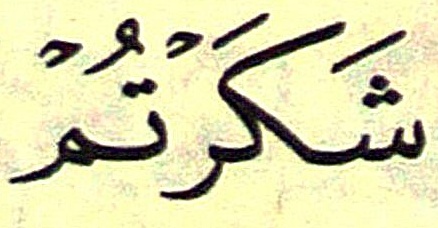 شَكَرْتُمْ